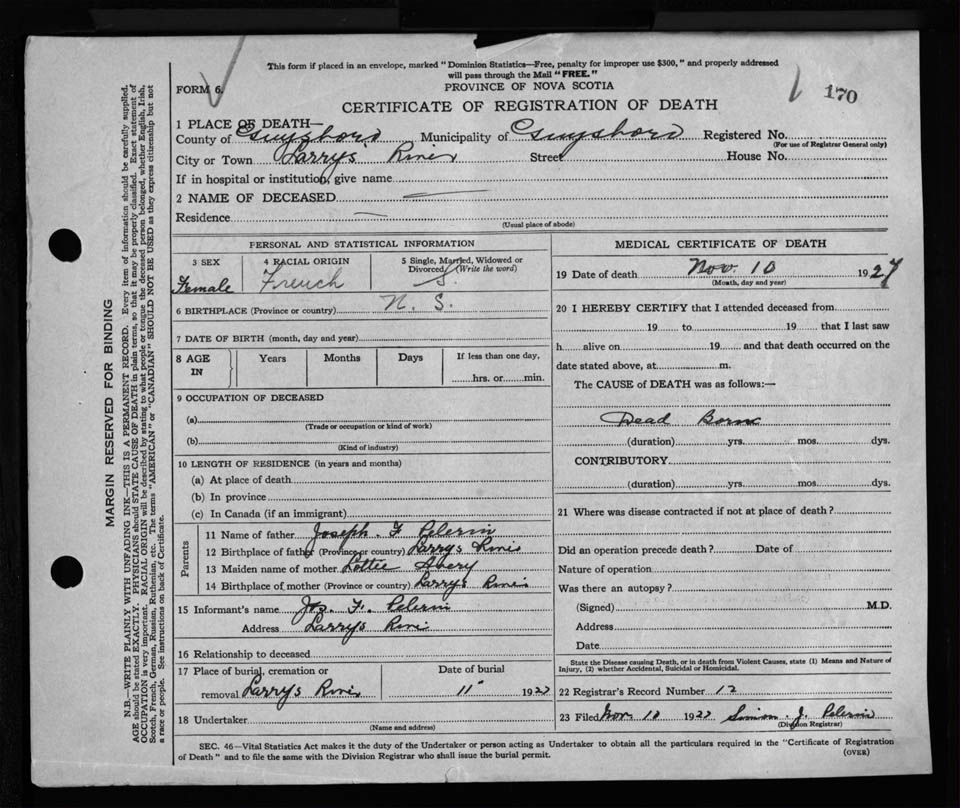 This form if placed in an envelope, marked "Dominion Statistics—Free, penalty for improper use $300," and properly addressed
will pass through the Mail "FREE."
FORM 6.
PROVINCE OF NOVA SCOTIA
170
CERTIFICATE OF REGISTRATION OF DEATH
1 PLACE OF DEATH—
County of Guysboro Municipality of Guysboro Registered No.
(For use of Registrar General only)
City or Town Larrys River Street House No.
If in hospital or institution, give name
2 NAME OF DECEASED —
Residence —
(Usual place of abode)
PERSONAL AND STATISTICAL INFORMATION
3 SEX
Female
4 RACIAL ORIGIN
French
5 Single, Married, Widowed or
Divorced (Write the word)
S.
6 BIRTHPLACE (Province or country) N. S.
7 DATE OF BIRTH (month, day and year)
8 AGE
IN
Years Months Days If less than one day,
hrs. or min.
9 OCCUPATION OF DECEASED
(a)
(Trade or occupation or kind of work)
(b)
(Kind of industry)
10 LENGTH OF RESIDENCE (in years and months)
(a) At place of death
(b) In province
(c) In Canada (if an immigrant)
Parents
11 Name of father Joseph F Pelerin
12 Birthplace of father (Province or country) Larrys River
13 Maiden name of mother Lottie Avery
14 Birthplace of mother (Province or country) Larrys River
15 Informant's name Jos. F. Pelerin
Address Larrys River
16 Relationship to deceased
17 Place of burial, cremation or
removal Larrys River
Date of burial
11 1927
18 Undertaker
(Name and address)
MEDICAL CERTIFICATE OF DEATH
19 Date of death Nov. 10 1927
(Month, day and year)
20 I HEREBY CERTIFY that I attended deceased from
19 to 19 that I last saw
h alive on 19 and that death occurred on the
date stated above, at m.
The CAUSE of DEATH was as follows:—
Dead Born
(duration) yrs. mos. dys.
CONTRIBUTORY
(duration) yrs. mos. dys.
21 Where was disease contracted if not at place of death?
Did an operation precede death? Date of
Nature of operation
Was there an autopsy?
(Signed) M.D.
Address
Date
State the Disease causing Death, or in death from Violent Causes, state (1) Means and Nature of
Injury, (2) whether Accidental, Suicidal or Homicidal.
22 Registrar's Record Number 12
23 Filed Nov. 10 1927 Simon J. Pelerin
(Division Registrar)
SEC. 46—Vital Statistics Act makes it the duty of the Undertaker or person acting as Undertaker to obtain all the particulars required in the "Certificate of Registration
of Death" and to file the same with the Division Registrar who shall issue the burial permit.
(OVER)
MARGIN RESERVED FOR BINDING
N.B.—WRITE PLAINLY WITH UNFADING INK—THIS IS A PERMANENT RECORD. Every item of information should be carefully supplied.
AGE should be stated EXACTLY. PHYSICIANS should STATE CAUSE OF DEATH in plain terms, so that it may be properly classified. Exact statement of
OCCUPATION is very important. RACIAL ORIGIN will be described by stating to what people or tongue the deceased person belonged, whether English, Irish,
Scotch, French, German, Russian, Ruthenian, etc. The terms "AMERICAN" or "CANADIAN" SHOULD NOT BE USED as they express citizenship but not
a race or people. See instructions on back of Certificate.